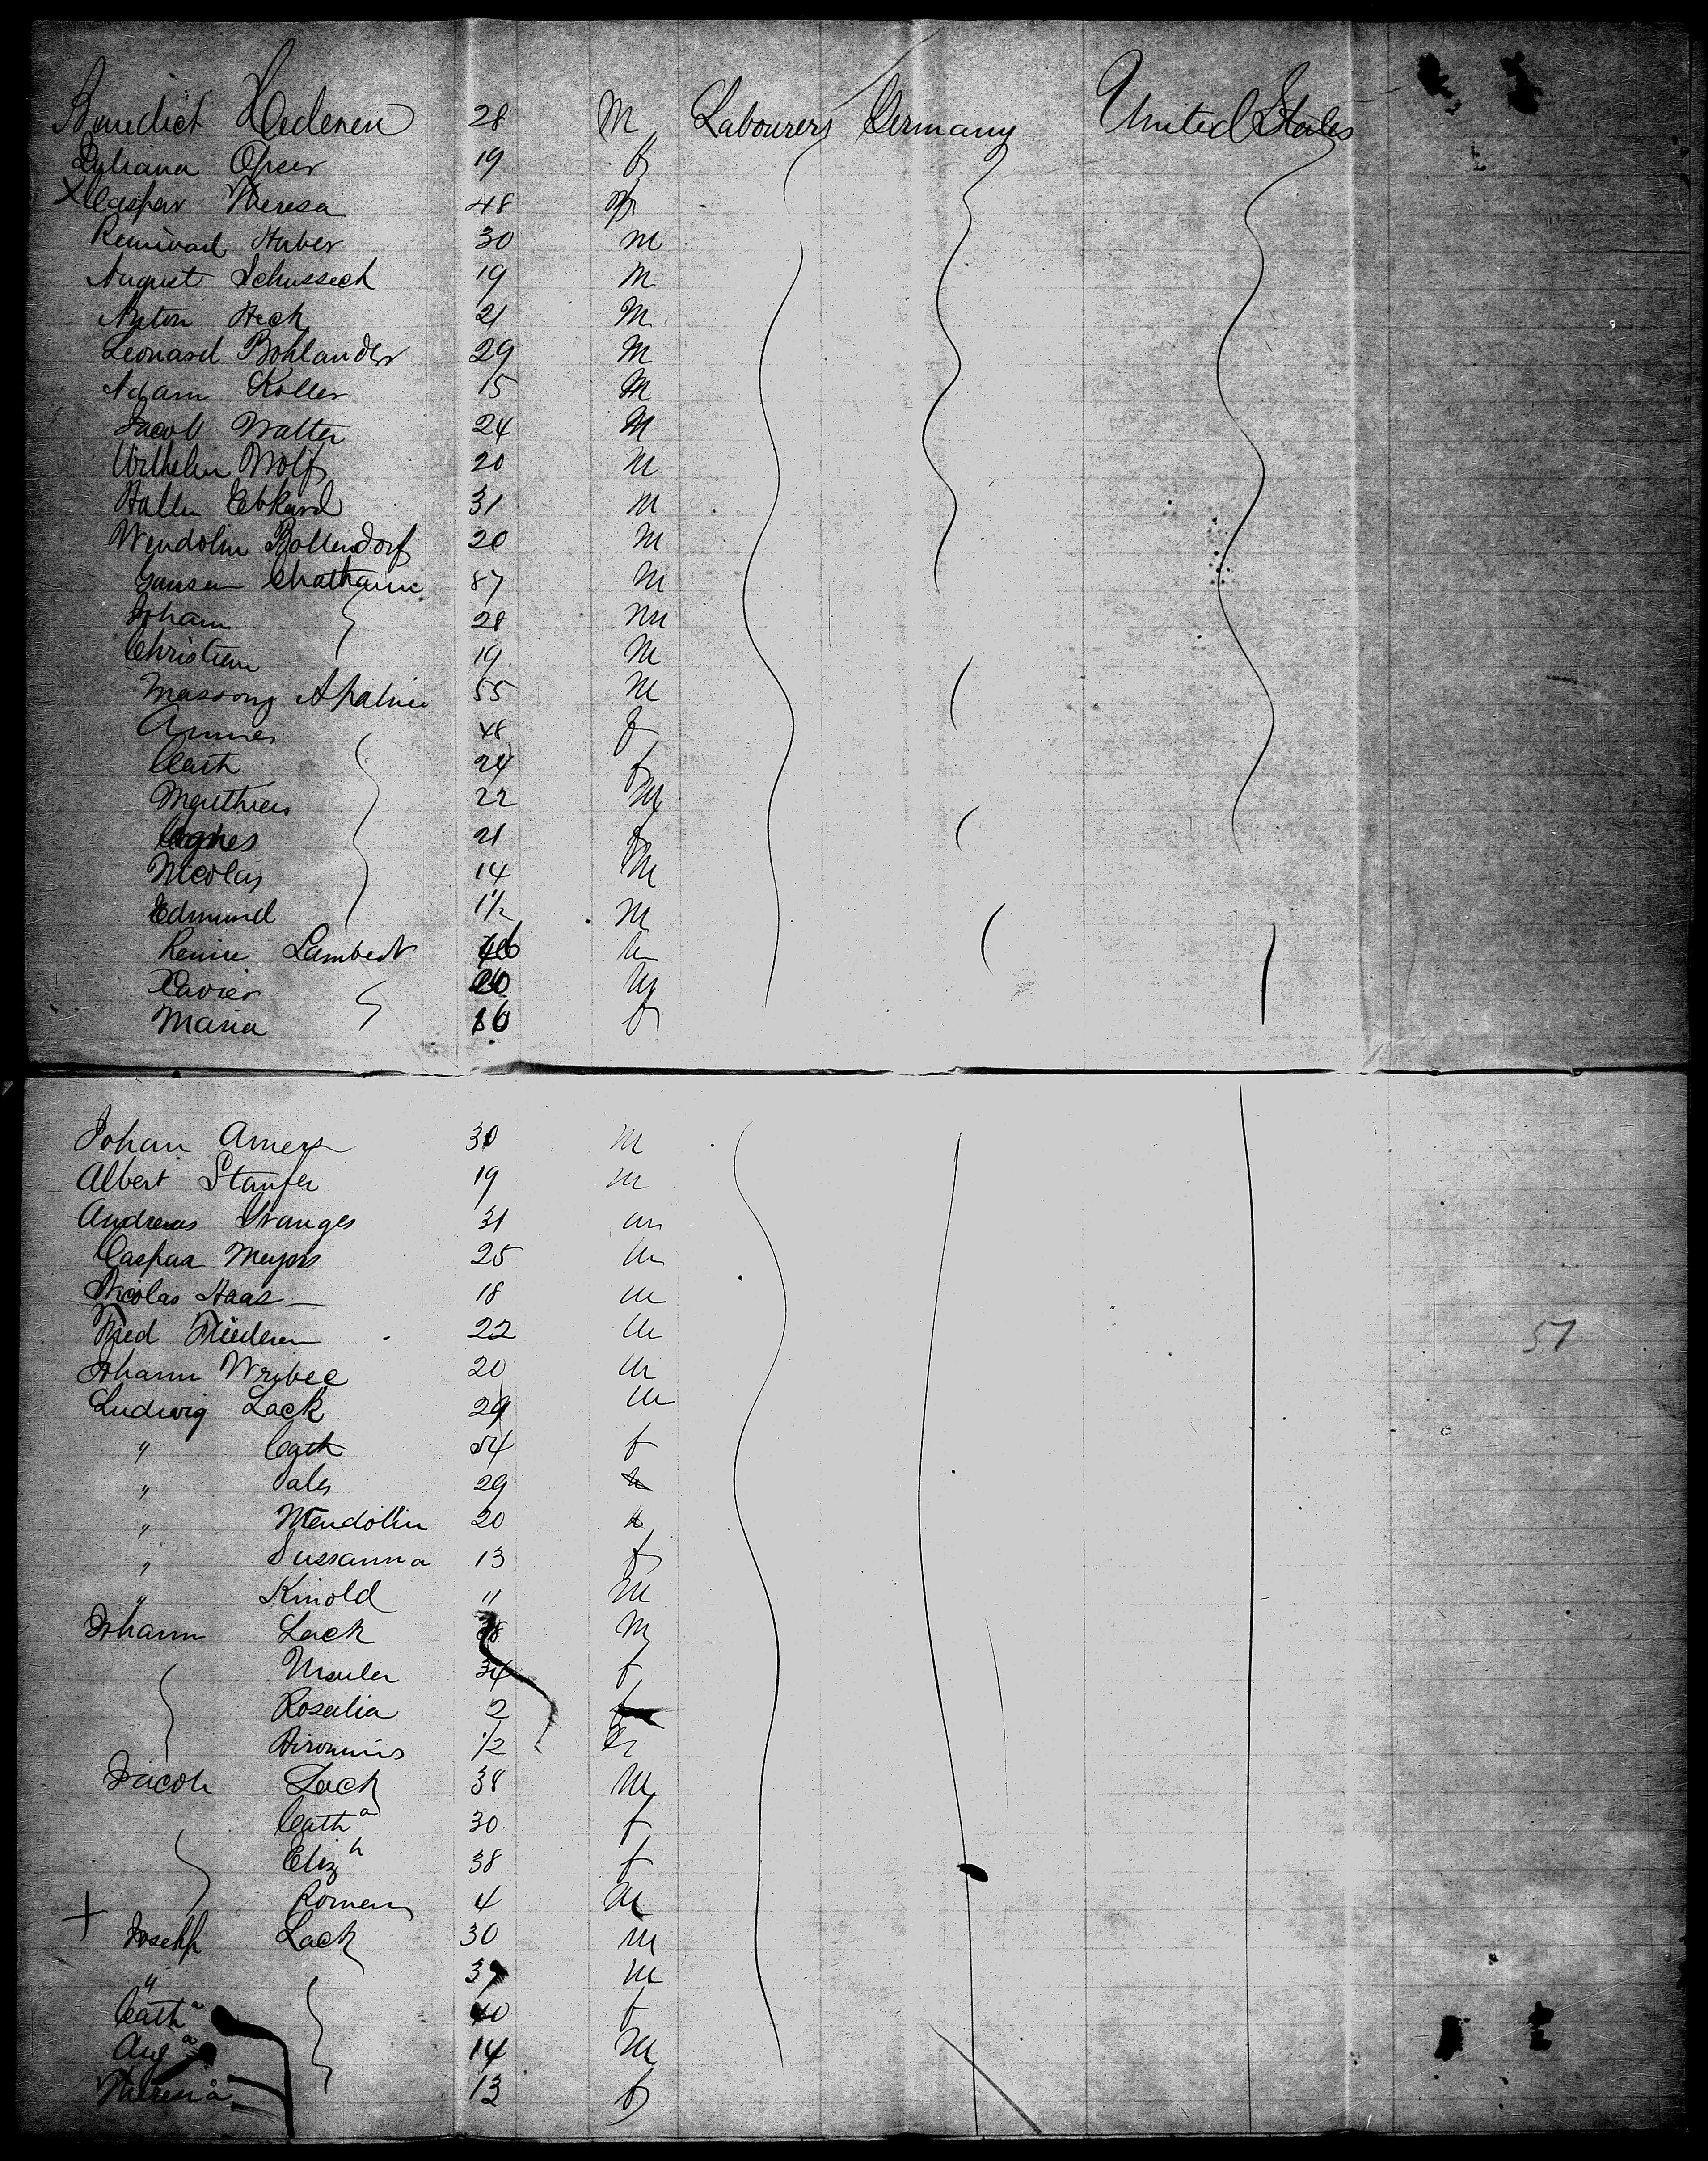 Benedict Hederen 28 M Labourers Germany United States
Juliana Opser 19 f
X Caspar Theresa 48
Huber 30 m
August Schusseck 19 M
Anton Heck 21 M
Leonard Bohlander 29 M
Adam Koller 15 M
Jacob Walter 24 M
Wilhelm Wolf 20 M
31 M
Wendolin Bollendorf 20 M
87 M
Johann 28 m
Christian 19 M
Massong 55 M
48 f
Cath 24 f
Matthias 22 M
Agnes 21 f
Nicolas 14 M
Edmund 1 1/2 M
Lambert m
Xavier 20 m
Maria 16 f
Johan Amers 30 m
Albert Staufer 19 m
Andreas Granges 31 m
Caspar Meyers 25 m
Nicolas Haas 18 m
Fred Niederer 22 m
Johann 20 m
57
Ludwig Lack 29 m
" Cath 54 f
" Sales 29
" Wendolin 20
" Sussanna 13 f
" Kinold 11 M
Johann Lack 38 M
Ursula 34 f
Rosalia 2 f
1/2
Jacob Lack 38 M
Cath a 30 f
Eliz h 38 f
Roman 4 M
+ Joseph Lack 30 m
" 39 m
Cath a 40 f
Aug 14 M
Theresia 13 f